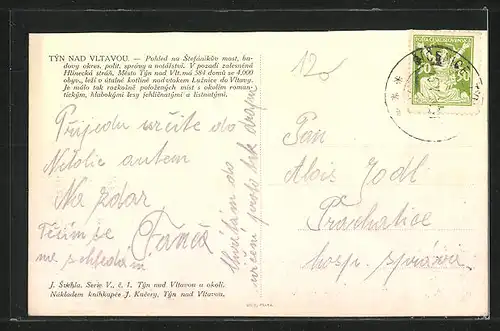 TÝN NAD VLTAVOU. — Pohled na Štefánikův most, budovy okres. polit. správy a notářství. V pozadí zalesněná
Hlinecká stráň. Město Týn nad Vlt. má 584 domů se 4.000
obyv., leží v útulné kotlině nad vtokem Lužnice do Vltavy.
Je málo tak rozkošně položených míst s okolím romantickým, hlubokými lesy jehličnatými a listnatými.
Přijedu určitě do
Netolic autem
Na zdar
Těším se
na shledání
Pan
Alois Jodl
Prachatice
hosp. správa
J. Švehla. Serie V., č. 1. Týn nad Vltavou a okolí.
Nákladem knihkupce J. Kučery, Týn nad Vltavou.